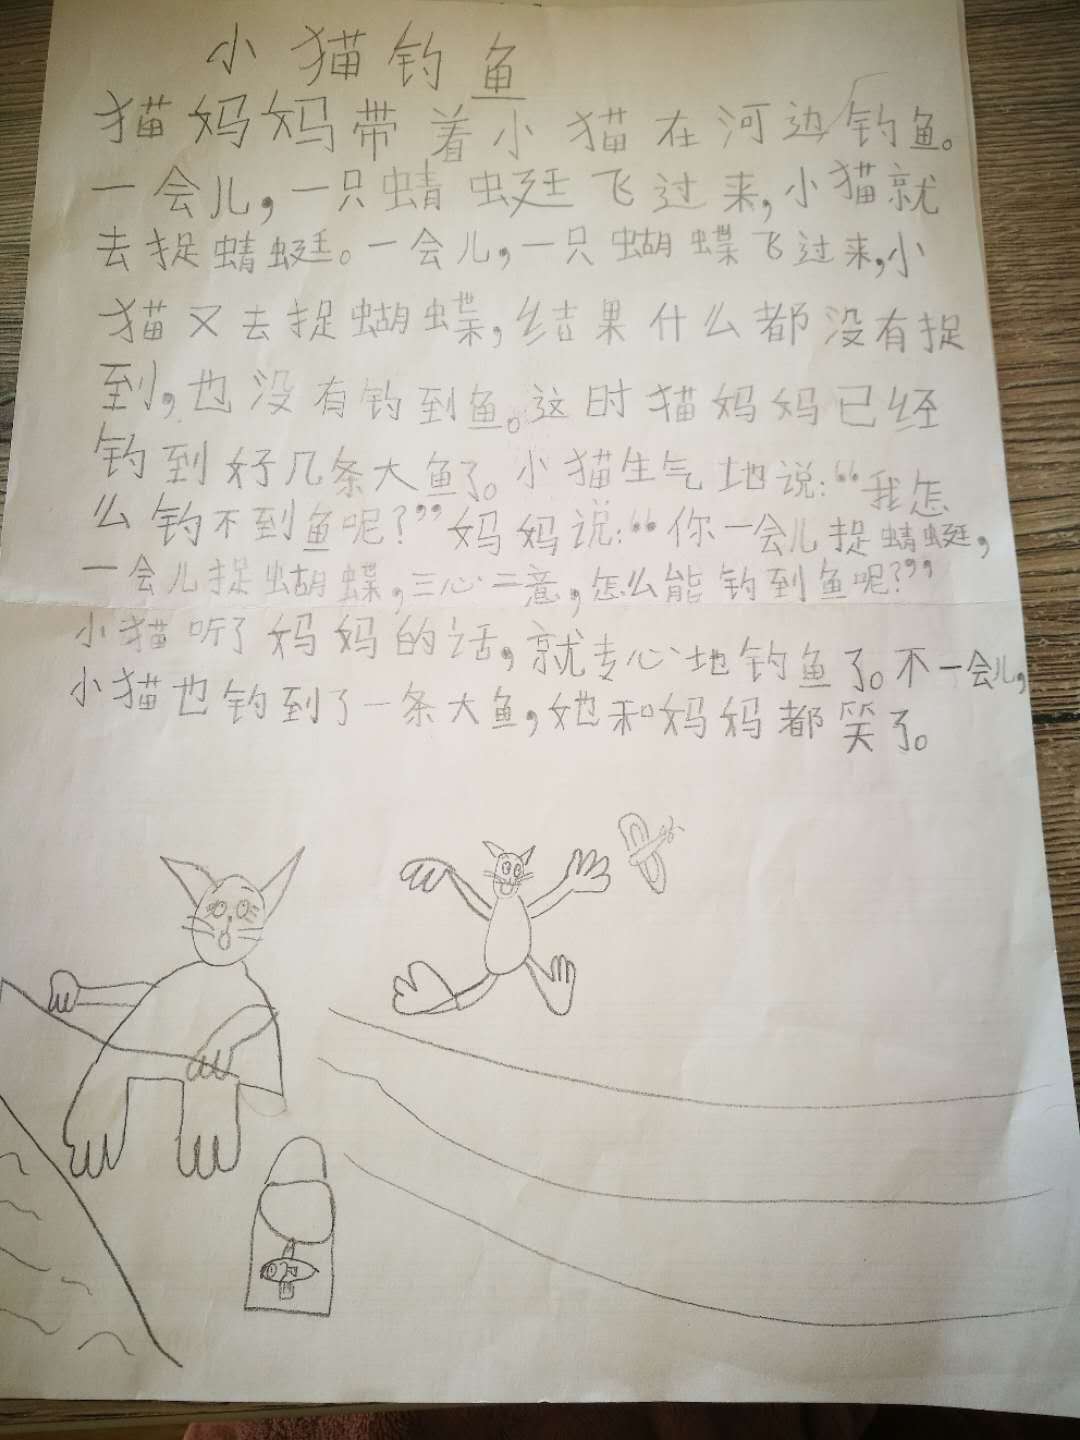 小猫钓鱼
猫妈妈带着小猫在河边钓鱼。
一会儿,一只蜻蜓飞过来,小猫就
去捉蜻蜓。一会儿,一只蝴蝶飞过来,小
猫又去捉蝴蝶,结果什么都没有捉
到,也没有钓到鱼。这时猫妈妈已经
钓到好几条大鱼了。小猫生气地说:“我怎
么钓不到鱼呢?”妈妈说:“你一会儿捉蜻蜓,
一会儿捉蝴蝶,三心二意,怎么能钓到鱼呢?”
小猫听了妈妈的话,就专心地钓鱼了。不一会儿,
小猫也钓到了一条大鱼,她和妈妈都笑了。